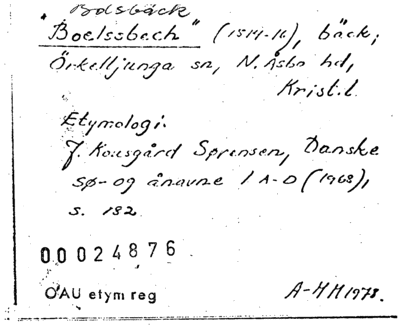 Bolsbäck
"Boelssbech" (1514-16), bäck;
Örkelljunga sn, N. Åsbo hd,
Krist.l.
Etymologi:
J. Kousgård Sørensen, Danske
sø- og ånavne 1 A-D (1968),
s. 182
00024876
OAU etym reg
A-HH 1978.